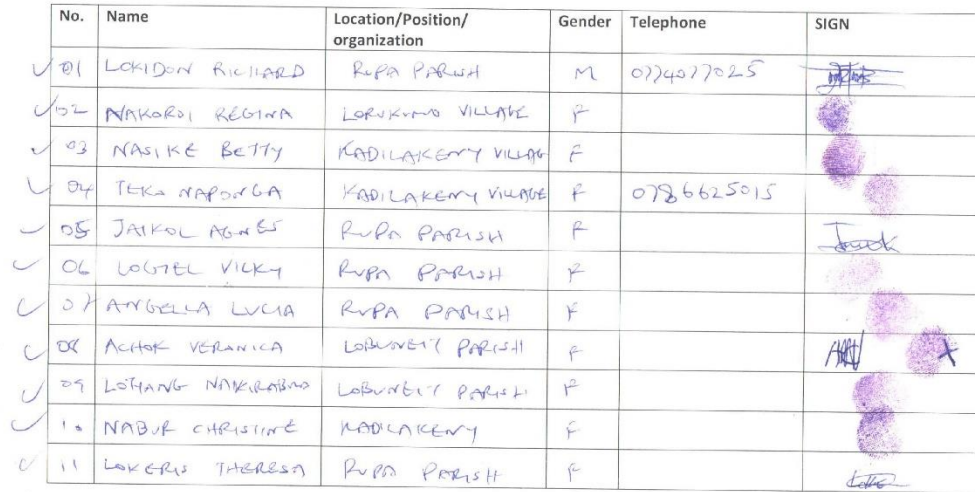 No. Name Location/Position/ Gender Telephone SIGN
organization
01 LOKIDON RICHARD RUPA PARISH M 0774077025
02 NAKOROI REGINA LORUKUMO VILLAGE F
03 NASIKE BETTY KADILAKENY VILLAG F
04 TEKO NAPONGA KADILAKENY VILLAGE F 0786625015
05 JAIKOL AGNES RUPA PARISH F
06 LOGIEL VICKY RUPA PARISH F
07 ANGELLA LUCIA RUPA PARISH F
08 ACHOK VERONICA LOBUNEIT PARISH F
09 LOTHANG LOBUNEIT PARISH F
10 NABUR CHRISTINE KADILAKENY F
11 LOKERIS THERESA RUPA PARISH F